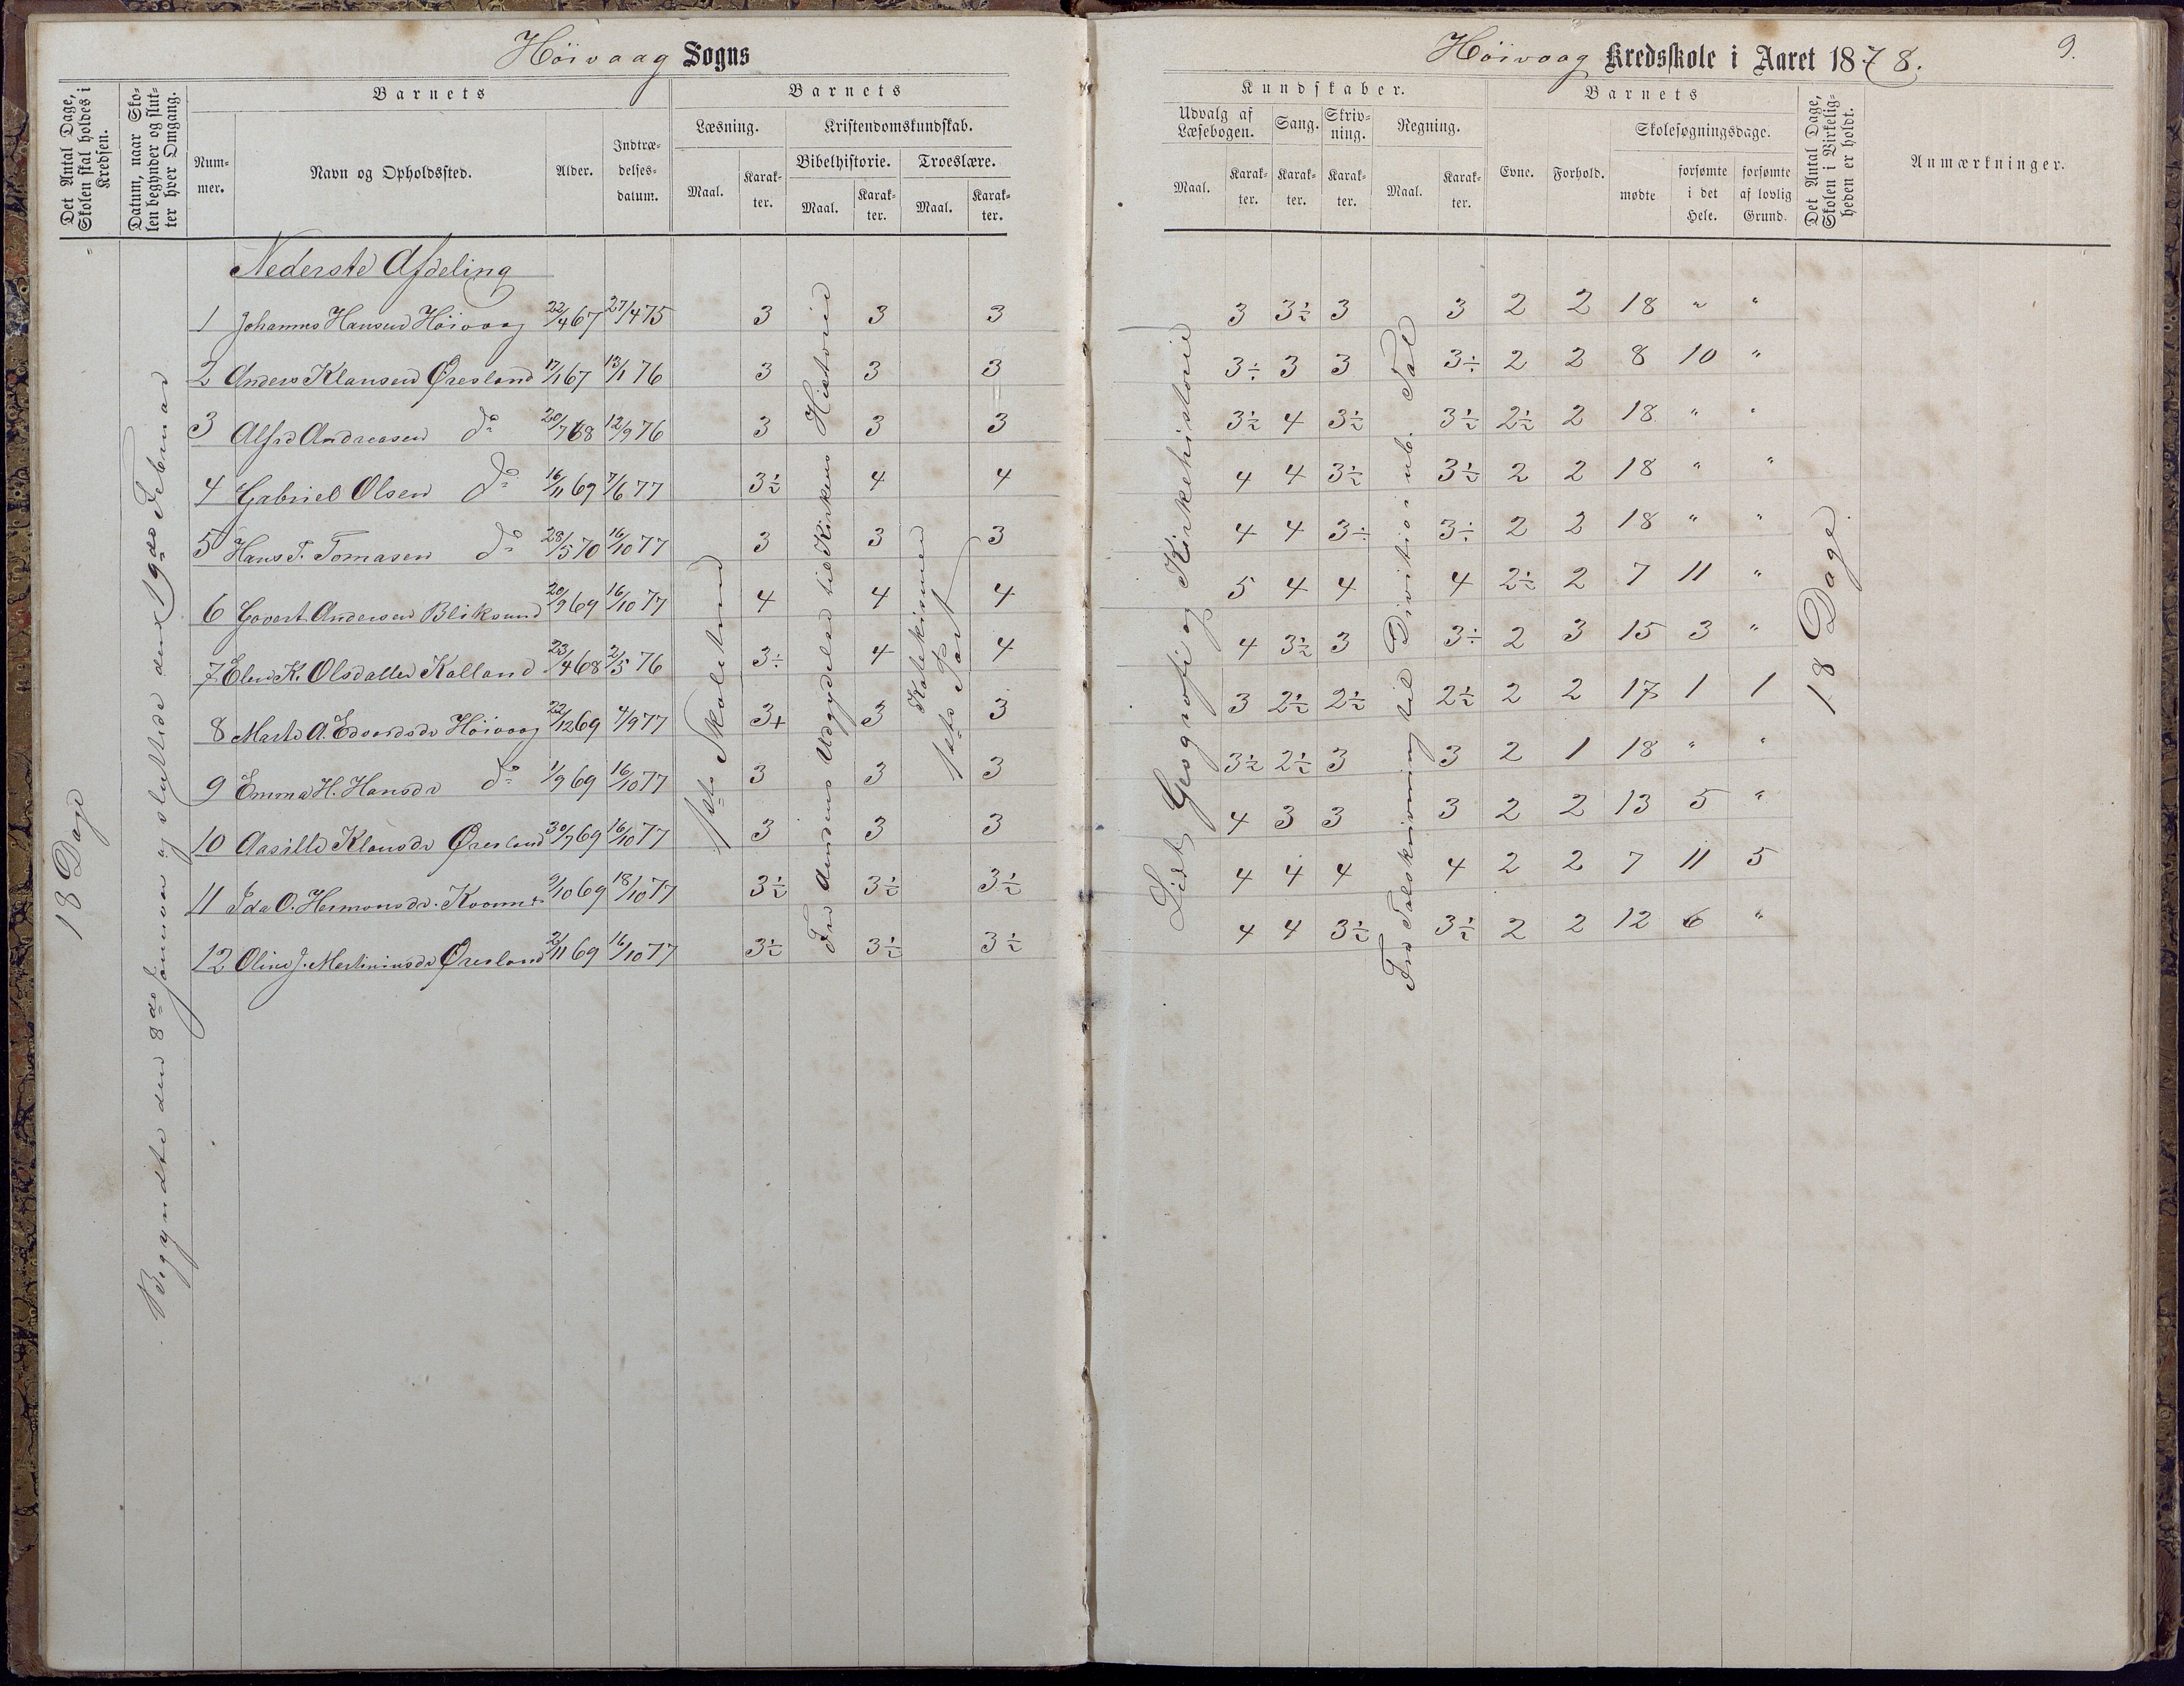 Höivaag Sogns
Det Antal Dage, Skolen skal holdes i Kredsen.
Datum, naar Skolen begynder og slutter hver Omgang.
Barnets
Nummer.
Navn og Opholdssted.
Alder.
Indtrædelsesdatum.
Barnets
Læsning.
Kristendomskundskab.
Bibelhistorie.
Troeslære.
Maal.
Karakter.
Maal.
Karakter.
Maal.
Karakter.
18 Dage
Begyndte den 8de Januar og sluttede den 19de Februar
Nederste Afdeling
1 Johannes Hansen Höivaag 22/4 67 27/4 75 3 3 3
2 Anders Klausen Øresland 17/1 67 13/1 76 3 3 3
3 Alfred Andreasen do 20/7 68 12/9 76 3 3 3
4 Gabriel Olsen do 16/11 69 7/6 77 3½ 4 4
5 Hans T. Tomasen do 28/5 70 16/10 77 3 3 3
6 Govert Andersen Bliksund 20/9 69 16/10 77 4 4 4
7 Elen K. Olsdatter Kalland 23/4 68 2/5 76 3÷ 4 4
8 Marte A. Edvardsdr Höivaag 22/12 69 4/9 77 3+ 3 3
9 Emma H. Hansdr do 1/9 69 16/10 77 3 3 3
10 Aasille Klausdr Øresland 30/7 69 16/10 77 3 3 3
11 Ida O. Hermansdr. 9/10 69 18/10 77 3½ 3½ 3½
12 Oline J. Martiniusdr Øresland 2/11 69 16/10 77 3½ 3½ 3½
1ste Skoletrin
Fra Aandens Udgydelse til Kirkens Historie
Katekismens
1ste Part
Höivaag Kredsskole i Aaret 1878.
9.
Kundskaber.
Udvalg af Læsebogen.
Sang.
Skrivning.
Regning.
Maal.
Karakter.
Karakter.
Karakter.
Maal.
Karakter.
Barnets
Evne.
Forhold.
Skolesøgningsdage.
mødte
forsømte i det Hele.
forsømte af lovlig Grund.
Det Antal Dage, Skolen i Virkeligheden er holdt.
Anmærkninger.
3 3½ 3 3 2 2 18 " "
3÷ 3 3 3÷ 2 2 8 10 "
3½ 4 3½ 3½ 2½ 2 18 " "
4 4 3½ 3½ 2 2 18 " "
4 4 3÷ 3÷ 2 2 18 " "
5 4 4 4 2½ 2 7 11 "
4 3½ 3 3÷ 2 3 15 3 "
3 2½ 2½ 2½ 2 2 17 1 1
3½ 2½ 3 3 2 1 18 " "
4 3 3 3 2 2 13 5 "
4 4 4 4 2 2 7 11 5
4 4 3½ 3½ 2 2 12 6 "
Lidt Geografi og Kirkehistorie
Fra Talskrivning til Division i ub. Tal
18 Dage.